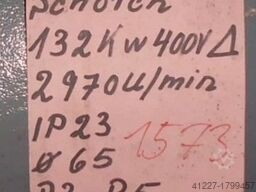 Schorch
132Kw 400V Δ
2970U/min
IP23
ø 65
1573
B3 B5
41227-1799457